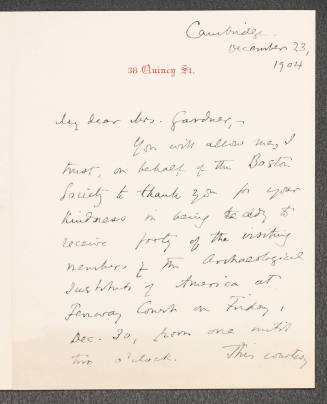 Cambridge.
December 23,
1904
38 Quincy St.
My dear Mrs. Gardner,—
You will allow me, I
trust, on behalf of the Boston
Society to thank you for your
kindness in being ready to
receive forty of the visiting
members of the Archaeological
Institute of America at
Fenway Court on Friday,
Dec. 30, from one until
two o'clock. This courtesy